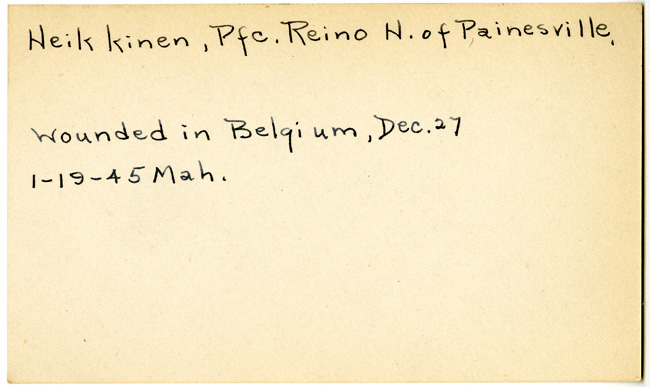 Heikkinen, Pfc. Reino H. of Painesville,
Wounded in Belgium, Dec. 27
1-19-45 Mah.